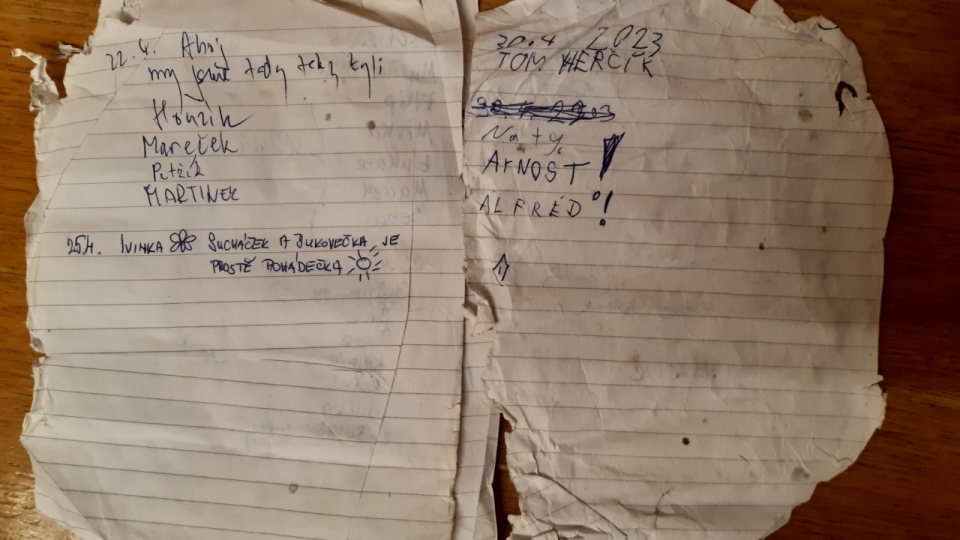 22.4. Ahoj
my jsme tady taky byli
Honzik
Mareček
Petžík
MARTINEK
25.4. IVINKA SUCHÁČEK A BUKOVEČKA JE
PROSTĚ POHÁDEČKA
30.4 2023
TOM HERČÍK
Naty
ArNOST !
ALFRÉD !